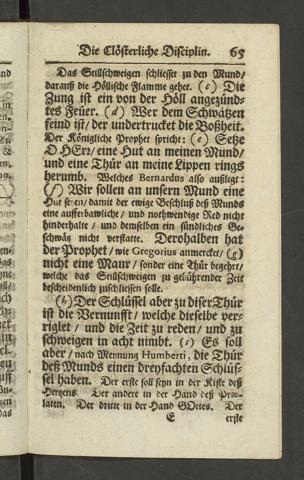 Die Clösterliche Disciplin. 65
Das Stillschweigen schliesset zu den Mund/
darauß die Höllische Flamme gehet. (c) Die
Zung ist ein von der Höll angezünd-
tes Feuer. (d) Wer dem Schwätzen
feind ist/ der undertrucket die Boßheit.
Der Königliche Prophet spricht: (e) Setze
O HErr/ eine Hut an meinen Mund/
und eine Thür an meine Lippen rings
herumb. Welches Bernardus also außlegt:
(f) Wir sollen an unserm Mund eine
Hut setzen/ damit der ewige Beschluß deß Munds
eine aufferbawliche/ und nothwendige Red nicht
hinderhalte/ und demselben ein sündliches Ge-
schwäz nicht verstatte. Derohalben hat
der Prophet/ wie Gregorius anmercket/ (g)
nicht eine Maur/ sonder eine Thür begehrt/
welche das Stillschweigen zu gebührender Zeit
bescheidenlich zuschliessen solle.
(h) Der Schlüssel aber zu diser Thür
ist die Vernunfft/ welche dieselbe ver-
riglet/ und die Zeit zu reden/ und zu
schweigen in acht nimbt. (i) Es soll
aber/ nach Meynung Humberti, die Thür
deß Munds einen dreyfachten Schlüs-
sel haben. Der erste soll seyn in der Kiste deß
Hertzens. Der andere in der Hand deß Præ-
laten. Der dritte in der Hand GOttes. Der
E erste